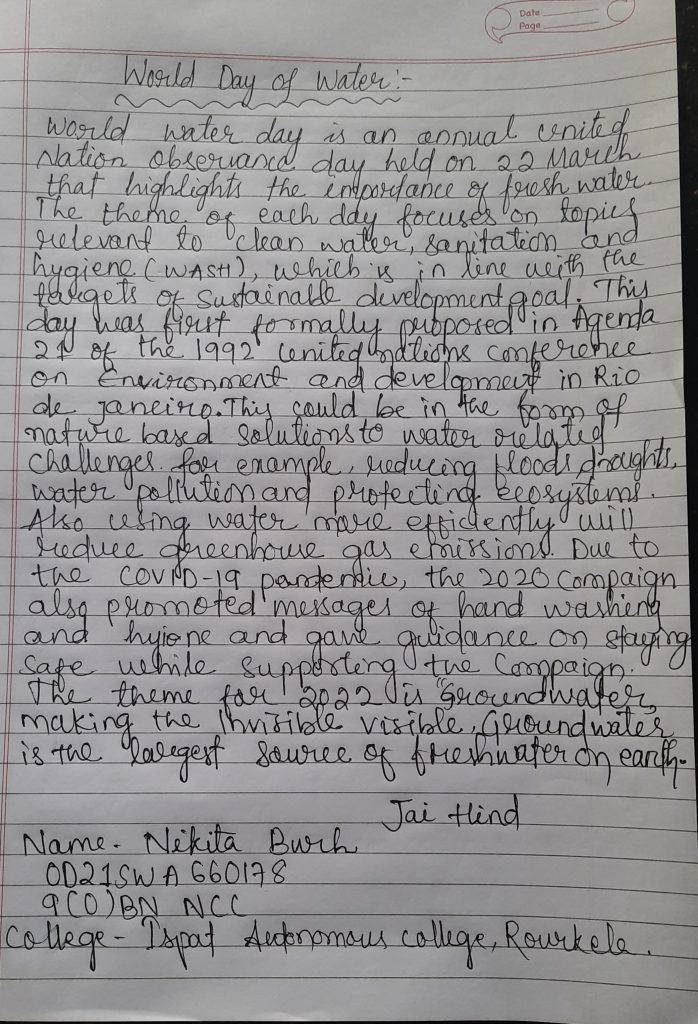 Date
Page
World Day of Water:-
World water day is an annual united
Nation observance day held on 22 March
that highlights the importance of fresh water.
The theme of each day focuses on topics
relevant to clean water, sanitation and
hygiene (WASH), which is in line with the
targets of sustainable development goal. This
day was first formally proposed in Agenda
21 of the 1992 united nations conference
on Environment and development in Rio
de janeiro. This could be in the form of
nature based solutions to water related
challenges. for example, reducing floods, droughts,
water pollution and protecting ecosystems.
Also using water more efficiently will
reduce greenhouse gas emissions. Due to
the COVID-19 pandemic, the 2020 Campaign
also promoted messages of hand washing
and hyiene and gave guidance on staying
safe while supporting the Campaign.
The theme for 2022 is "Groundwater,
making the invisible visible, Groundwater
is the largest source of freshwater on earth.
Jai Hind
Name - Nikita Burh
OD21SWA660178
9(O)BN NCC
College - Ispat Autonomous college, Rourkela.